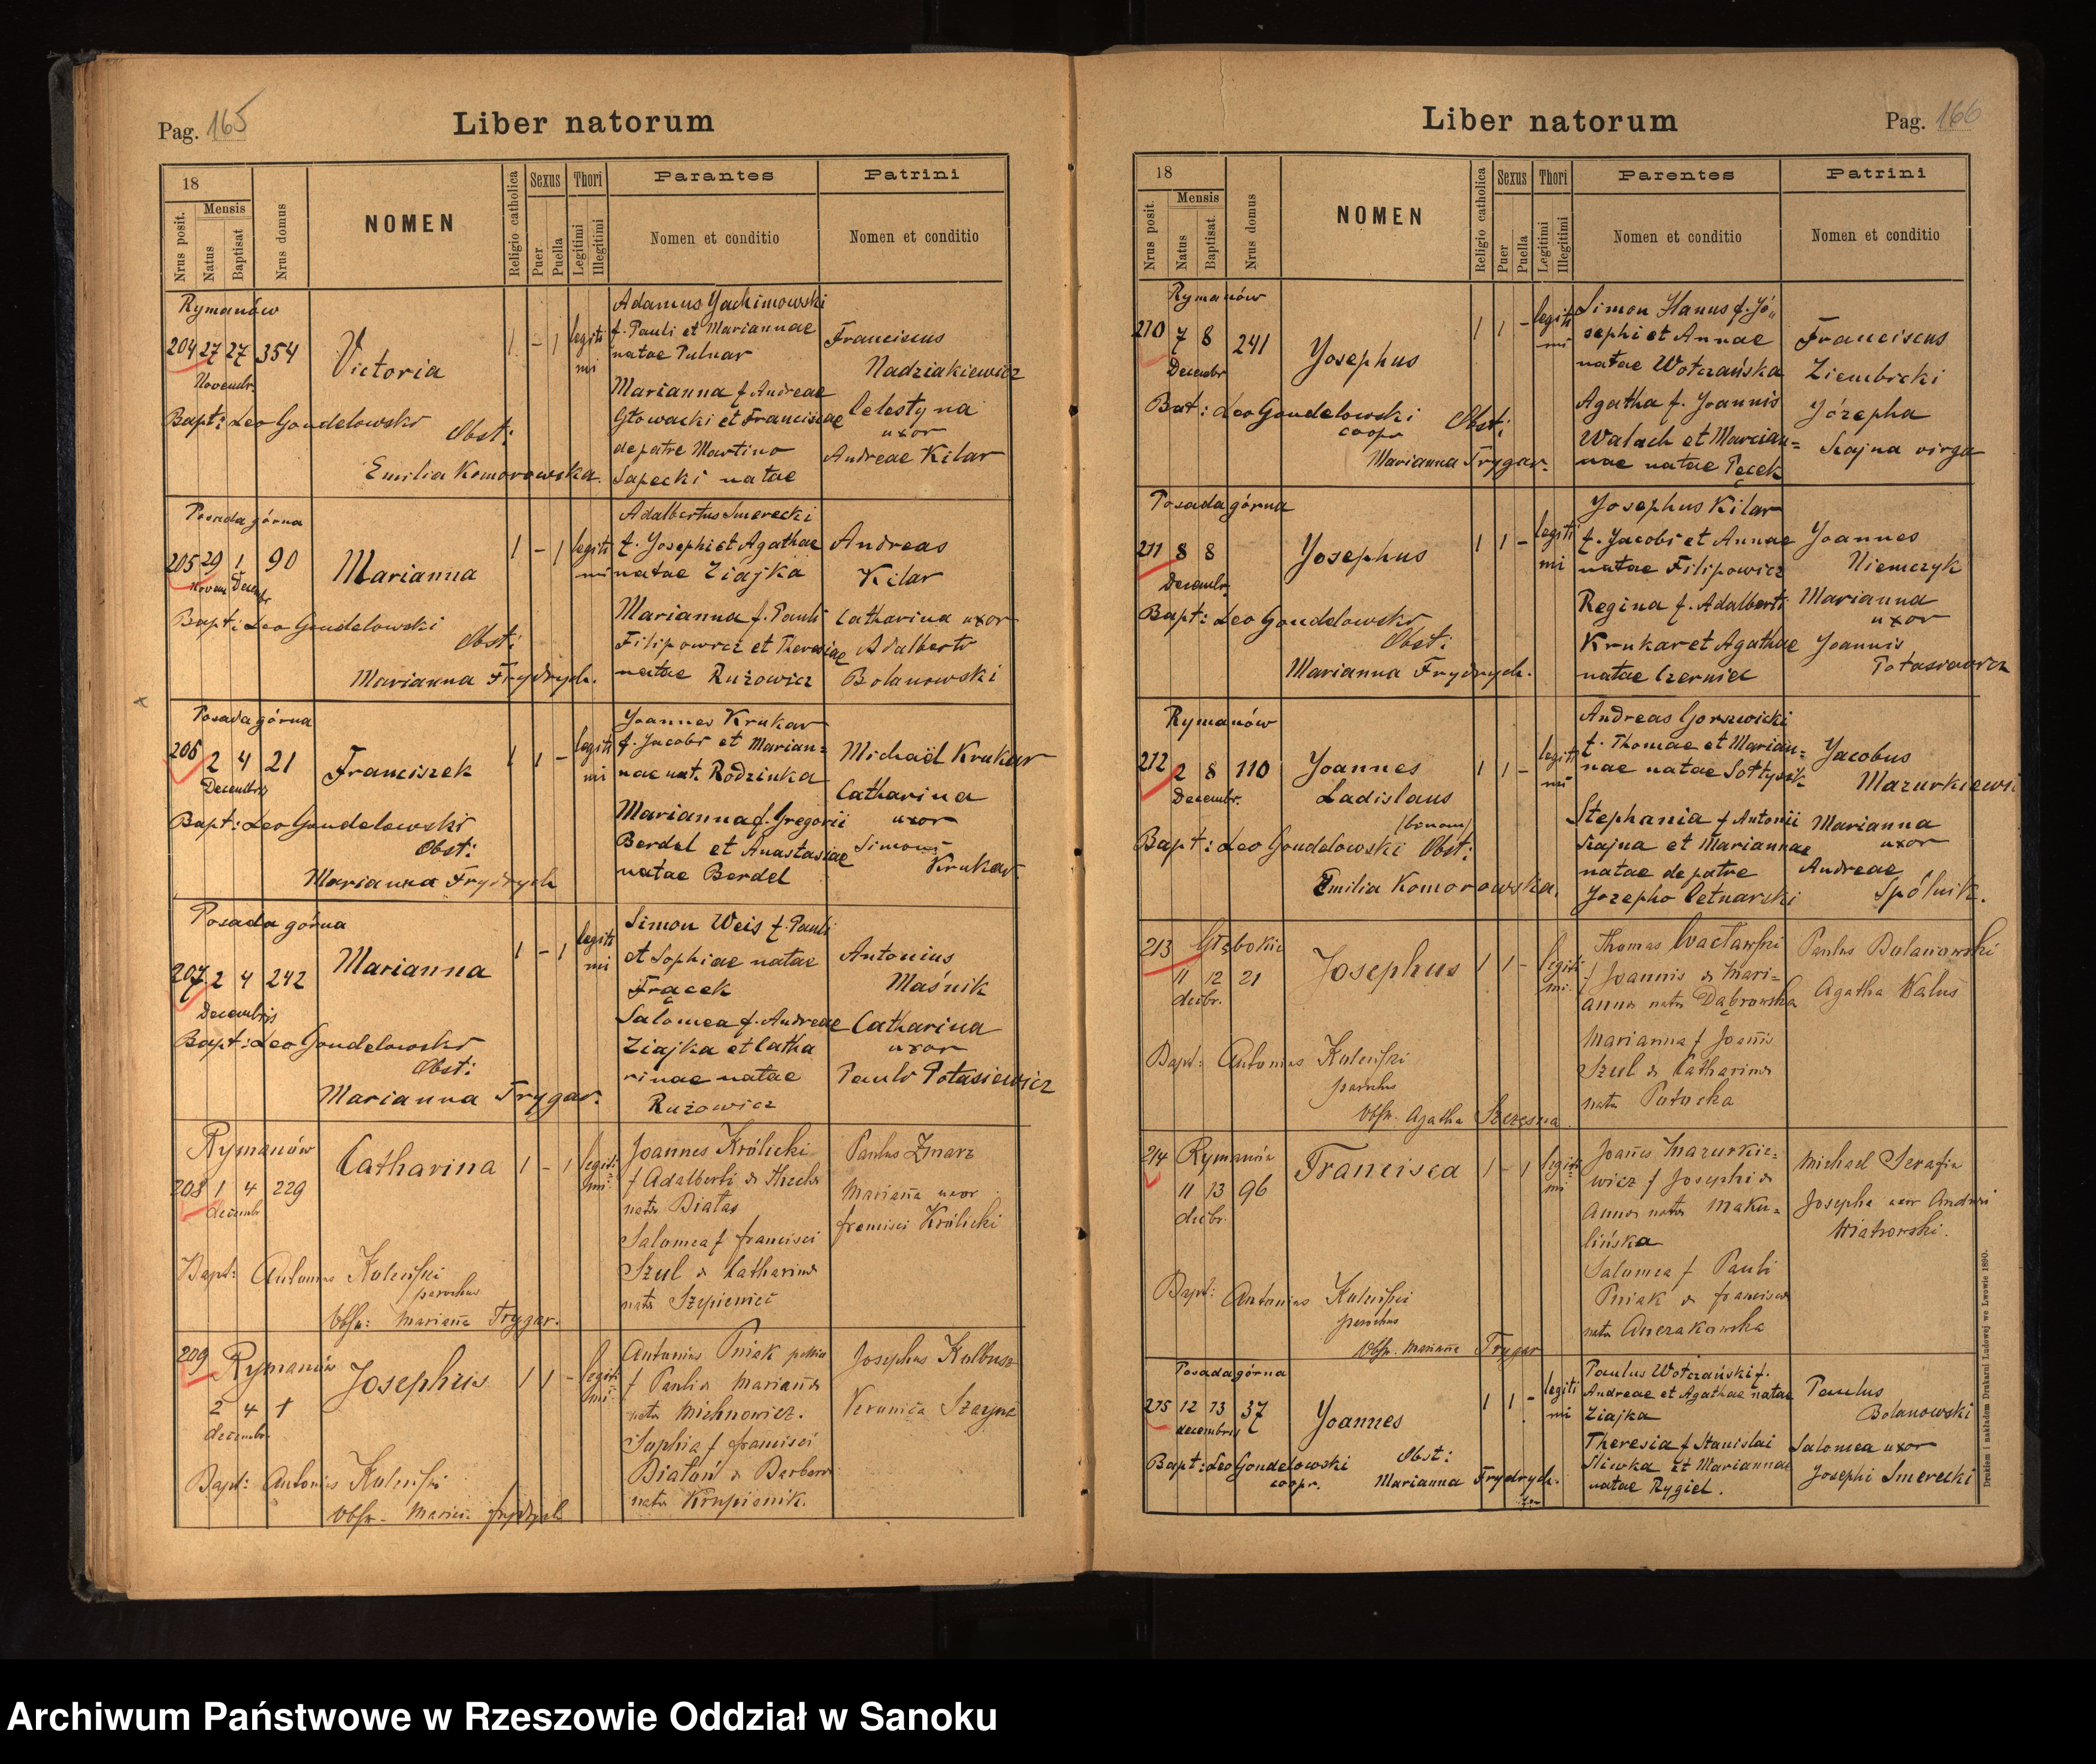 Pag. 165
Liber natorum
18
Mensis
Nrus posit.
Natus
Baptisat
Nrus domus
NOMEN
Religio catholica
Sexus
Puer
Puella
Thori
Legitimi
Illegitimi
Parantes
Nomen et conditio
Patrini
Nomen et conditio
Rymanów
204 27 27 354
Novembr.
Victoria
1 - 1 legiti
mi
Bapt: Leo Gondelowski
Obst:
Emilia Komorowska.
Adamus Jachimowski
f. Pauli et Mariannae
natae Pulnar
Marianna f. Andreae
Głowacki et Franciscae
de patre Martino
Sapecki natae
Franciscus
Nadziakiewicz
Celestyna
uxor
Andreae Kilar
Posada górna
205 29 1 90
Novem Decebr
Marianna
1 - 1 legiti
mi
Bapt: Leo Gondelowski
Obst:
Marianna Frydrych.
Adalbertus Smerecki
f. Josephi et Agathae
natae Ziajka
Marianna f. Pauli
Filipowicz et Theresiae
natae Rużowicz
Andreas
Kilar
Catharina uxor
Adalberti
Bolanowski
Posada górna
206 2 4 21
Decembris
Franciszek
1 1 - legiti
mi
Bapt: Leo Gondelowski
Obst:
Marianna Frydrych
Joannes Krukar
f. Jacobi et Marian=
nae nat. Rodzinka
Marianna f. Gregorii
Berdel et Anastasiae
natae Berdel
Michaël Krukar
Catharina
uxor
Simonis
Krukar
Posada górna
207 2 4 242
Decembris
Marianna
1 - 1 legiti
mi
Bapt: Leo Gondelowski
Obst:
Marianna Frygar.
Simon Weis f. Pauli
et Sophiae natae
Frącek
Salomea f. Andreae
Ziajka et Catha
rinae natae
Rużowicz
Antonius
Maśnik
Catharina
uxor
Pauli Potasiewicz
Rymanów
208 1 4 229
decembr
Catharina
1 - 1 legiti
mi
Bapt: Antonius Koleński
parochus
Obst: Marianna Frygar.
Joannes Królicki
f Adalberti & Theclae
natae Białas
Salomea f francisci
Szul & Catharinae
natae Szepieniec
Paulus Zmarz
Marianna uxor
francisci Królicki
209 Rymanów
2 4 1
decembr.
Josephus
1 1 - legiti
mi
Bapt: Antonius Koleński
Obst. Marian. frydrych
Antonius Pniak
f Pauli & Mariannae
natae Michnowicz.
Sophia f francisci
Białoń & Barbara
natae Krupienik.
Josephus Kolbusz
Veronica Szajna
Liber natorum
Pag. 166
18
Mensis
Nrus posit.
Natus
Baptisat.
Nrus domus
NOMEN
Religio catholica
Sexus
Puer
Puella
Thori
Legitimi
Illegitimi
Parentes
Nomen et conditio
Patrini
Nomen et conditio
Rymanów
210 7 8 241
Decembr
Josephus
1 1 - legiti
mi
Bat: Leo Gondelowski
coopr
Obst:
Marianna Frygar.
Simon Hanus f. Jó„
sephi et Annae
natae Wołczańska
Agatha f. Joannis
Walach et Marian=
nae natae Pęcek
Franciscus
Ziembicki
Józepha
Szajna virgo
Posada górna
211 8 8
Decembr.
Josephus
1 1 - legiti
mi
Bapt: Leo Gondelowski
Obst:
Marianna Frydrych.
Josephus Kilar
f. Jacobi et Annae
natae Filipowicz
Regina f. Adalberti
Krukar et Agathae
natae Czerniec
Joannes
Niemczyk
Marianna
uxor
Joannis
Potasiewicz
Rymanów
212 2 8 110
Decembr.
Joannes
Ladislaus
(binom)
1 1 - legiti
mi
Bapt: Leo Gondelowski Obst:
Emilia Komorowska.
Andreas Gorzwicki
f. Thomae et Marian=
nae natae Sołtysik
Stephania f Antonii
Szajna et Mariannae
natae de patre
Jozepho Cetnarski
Jacobus
Mazurkiewi
Marianna
uxor
Andreae
Spólnik.
213 Głębokie
11 12 21
decbr.
Josephus
1 1 - legiti
mi.
Bapt: Antonius Koleński
parochus
Obst. Agatha Szczęsna.
Thomas Wacławski
f Joannis & Mari=
anna natae Dąbrowska
Marianna f Joannis
Szul & Catharinae
natae Potocka
Paulus Bolanowski
Agatha Kalus
214 Rymanów
11 13 96
decbr.
Francisca
1 - 1 legiti
mi
Bapt: Antonius Koleński
parochus
Obst. Marianna Frygar
Joannes Mazurkie=
wicz f Josephi &
Anna natae Maku=
lińska
Salomea f Pauli
Pniak & francisca
natae
Michael Serafin
Josepha uxor Andreæ
Wiatrowski.
Posada górna
215 12 13 37
decembris
Joannes
1 1 - legiti
mi
Bapt: Leo Gondelowski
coopr.
Obst:
Marianna Frydrych.
Paulus Wołczański f.
Andreae et Agathae natae
Ziajka
Theresia f Stanislai
Sliwka et Mariannae
natae Rygiel.
Paulus
Bolanowski
Salomea uxor
Josephi Smerecki
Drukiem i nakładem Drukarni Ludowej we Lwowie 1890.
Archiwum Państwowe w Rzeszowie Oddział w Sanoku